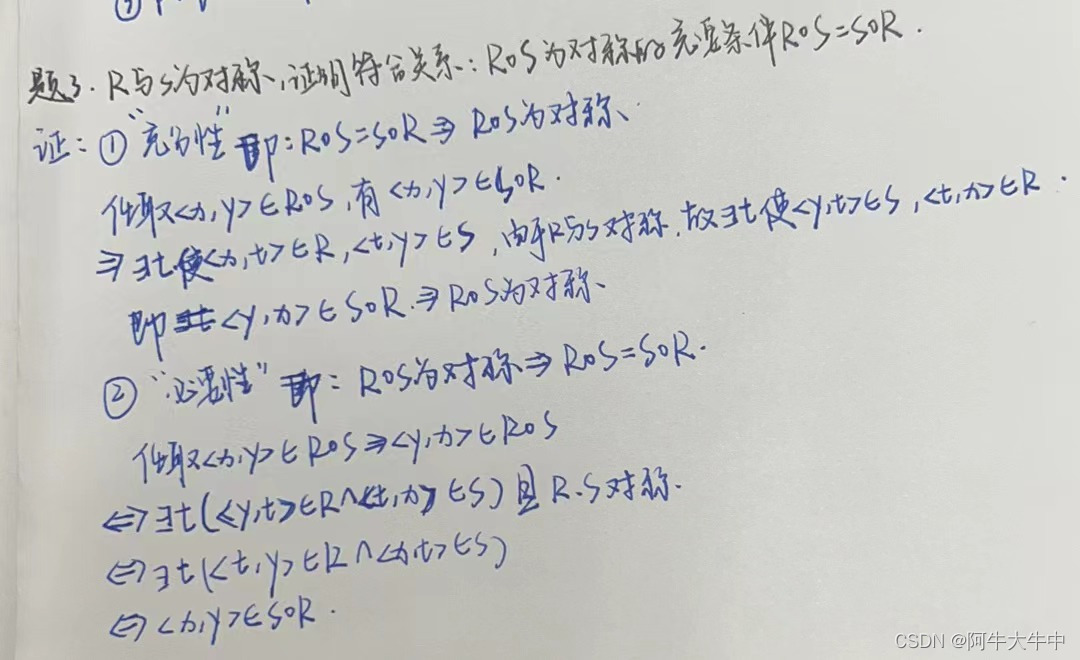 题3. R与S为对称,证明符合关系:R∘S为对称的充要条件R∘S=S∘R.
证:① "充分性" 即:R∘S=S∘R ⇒ R∘S为对称、
任取<x,y>∈R∘S,有<x,y>∈S∘R.
⇒∃t使<x,t>∈R,<t,y>∈S,由于R与S对称,故∃t使<y,t>∈S,<t,x>∈R.
即 <y,x>∈S∘R.⇒R∘S为对称、
② "必要性" 即: R∘S为对称⇒R∘S=S∘R.
任取<x,y>∈R∘S⇒<y,x>∈R∘S
⇔∃t(<y,t>∈R∧<t,x>∈S)且R.S对称.
⇔∃t(<t,y>∈R∧<x,t>∈S)
⇔<x,y>∈S∘R.
CSDN @阿牛大牛中